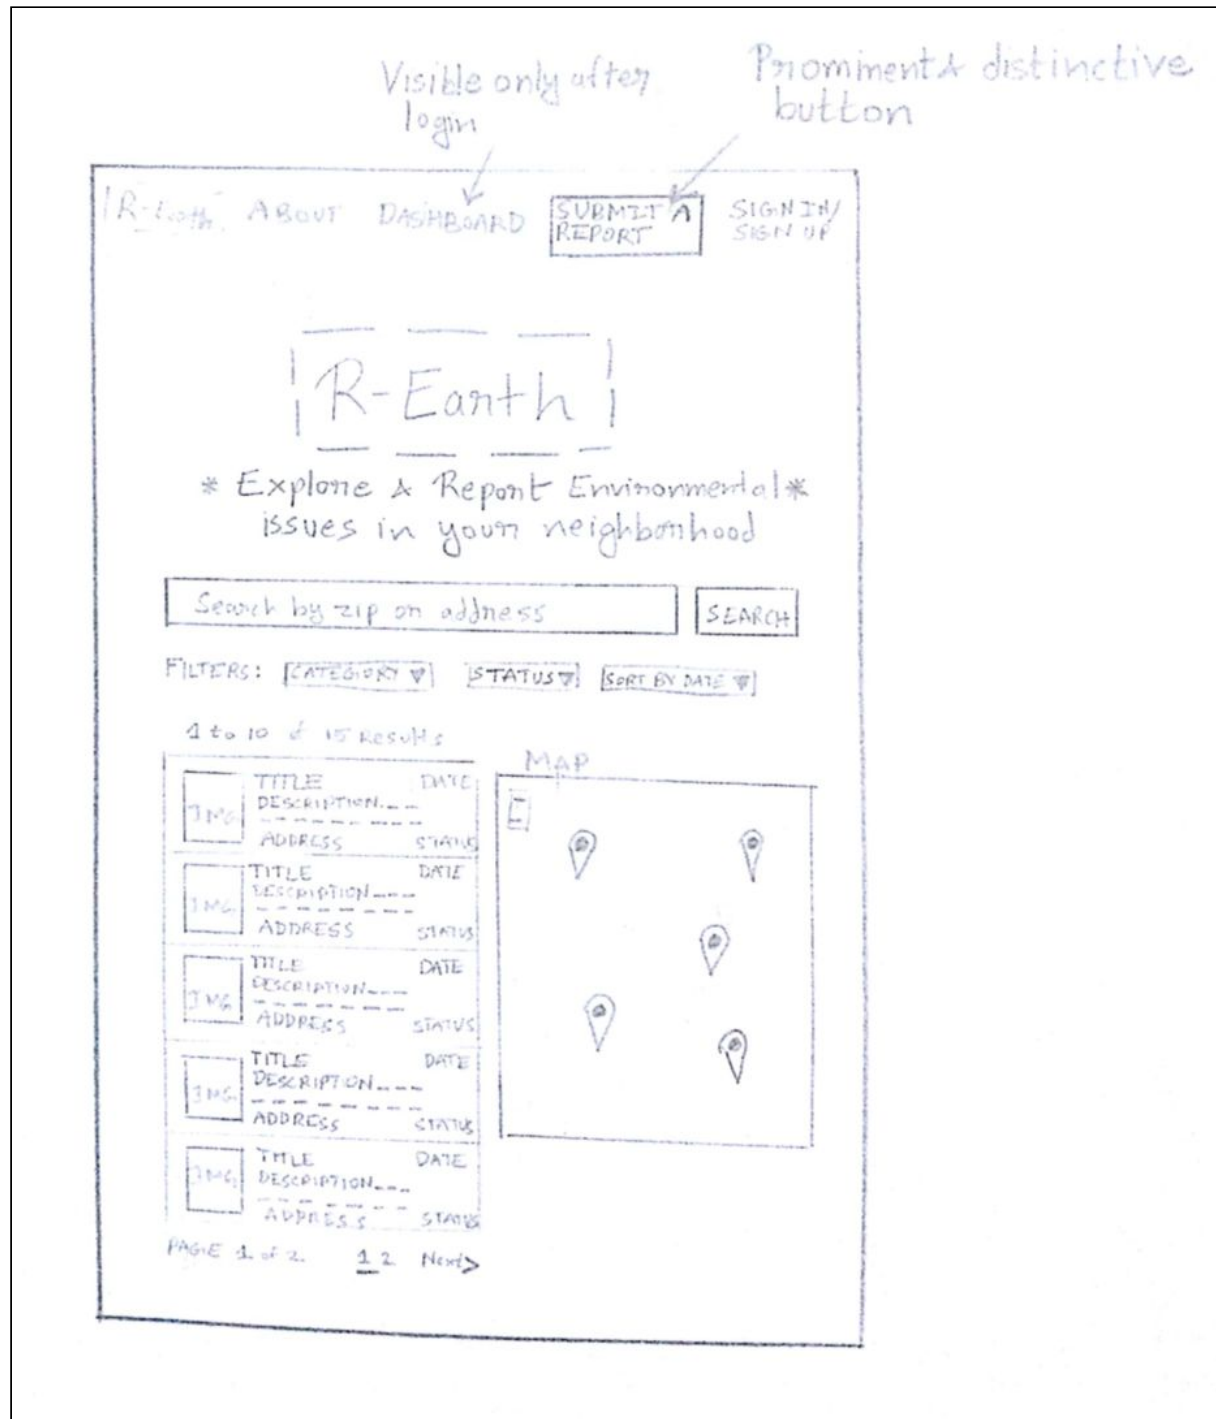 Visible only after
login
Prominent & distinctive
button
R-Earth
ABOUT
DASHBOARD
SUBMIT A
REPORT
SIGN IN/
SIGN UP
R-Earth
* Explore & Report Environmental *
issues in your neighborhood
Search by zip or address
SEARCH
FILTERS:
CATEGORY
STATUS
SORT BY DATE
1 to 10 of 15 Results
MAP
IMG
TITLE DATE
DESCRIPTION
ADDRESS STATUS
IMG
TITLE DATE
DESCRIPTION
ADDRESS STATUS
IMG
TITLE DATE
DESCRIPTION
ADDRESS STATUS
IMG
TITLE DATE
DESCRIPTION
ADDRESS STATUS
IMG
TITLE DATE
DESCRIPTION
ADDRESS STATUS
PAGE 1 of 2 1 2 Next>